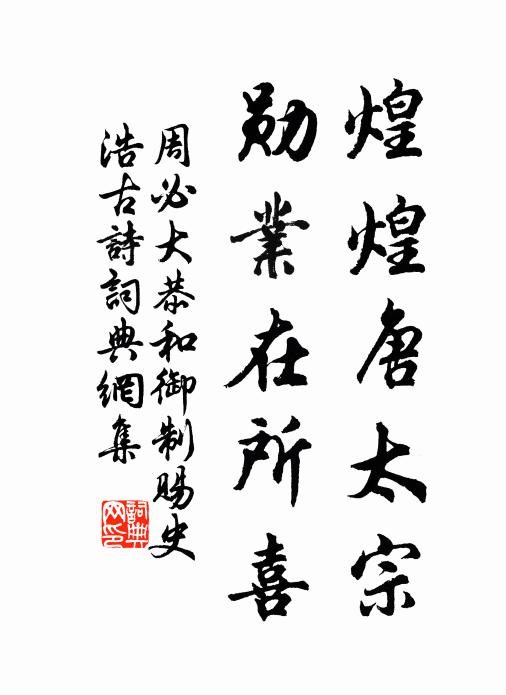 煌煌唐太宗
勋業在所喜
周必大恭和御制賜史
浩古詩詞典網集
詞典
网印